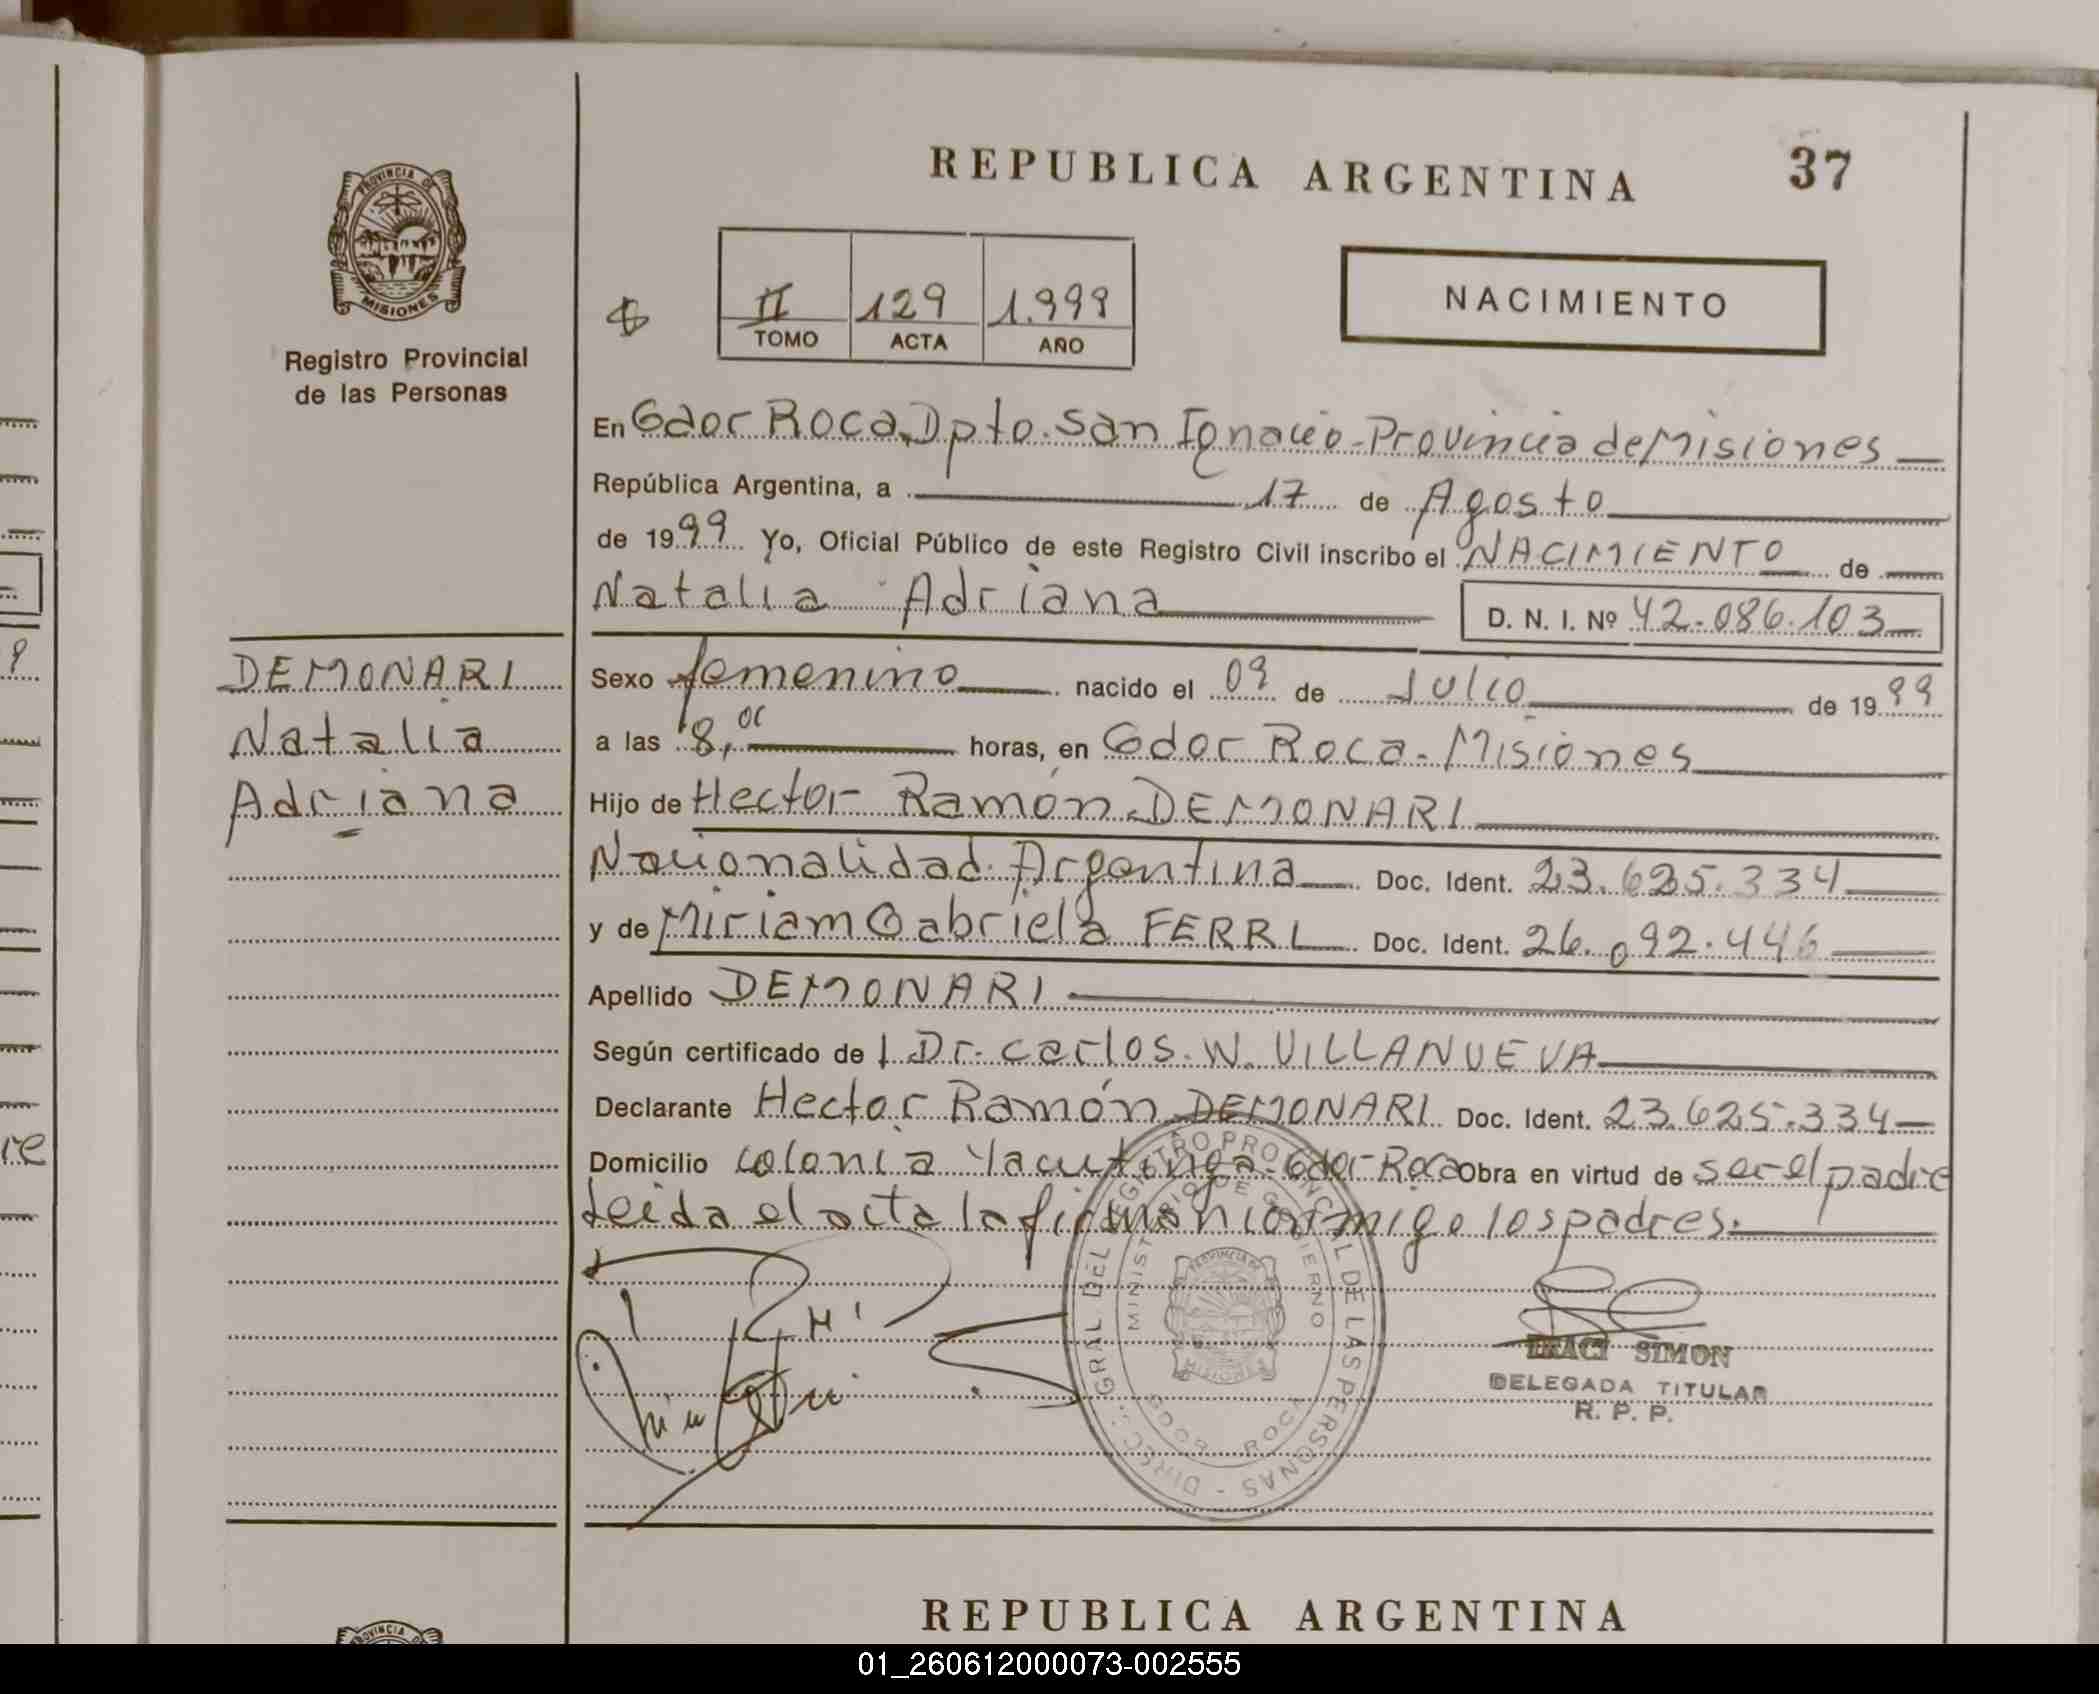 REPUBLICA ARGENTINA
37
PROVINCIA DE
MISIONES
Registro Provincial
de las Personas
II 129 1.999
TOMO ACTA AÑO
NACIMIENTO
En Gdor Roca, Dpto. San Ignacio - Provincia de Misiones
República Argentina, a 17 de Agosto
de 1999 Yo, Oficial Público de este Registro Civil inscribo el NACIMIENTO de
Natalia Adriana
D. N. I. Nº 42.086.103
DEMONARI
Natalia
Adriana
Sexo femenino nacido el 09 de Julio de 1999
a las 8,oo horas, en Gdor Roca - Misiones
Hijo de Hector Ramón DEMONARI
Nacionalidad Argentina Doc. Ident. 23.625.334
y de Miriam Gabriela FERRI Doc. Ident. 26.092.446
Apellido DEMONARI
Según certificado del Dr. Carlos W. VILLANUEVA
Declarante Hector Ramón DEMONARI Doc. Ident. 23.625.334
Domicilio colonia Yacutinga - Gdor Roca Obra en virtud de ser el padre
Leida el acta la firman conmigo los padres.
DIREC. GRAL. DEL REGISTRO PROVINCIAL DE LAS PERSONAS
MINISTERIO DE GOBIERNO
PROVINCIA DE
MISIONES
GDOR. ROCA
SIMON
DELEGADA TITULAR
R. P. P.
REPUBLICA ARGENTINA
PROVINCIA
01_260612000073-002555